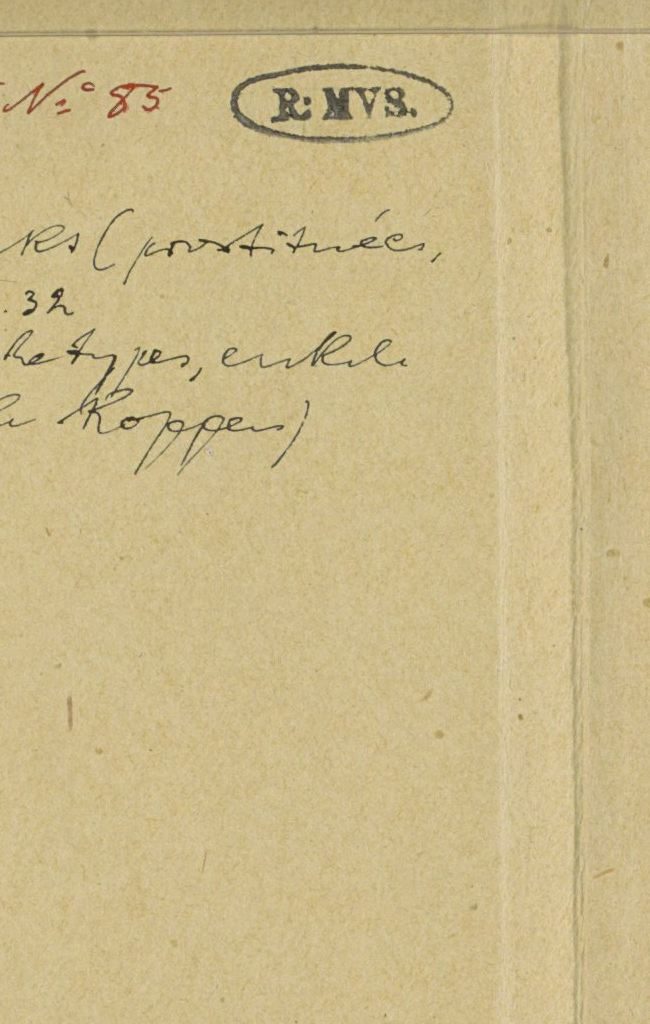 No 85
R: MVS.
ks (prostituées,
. 32
hetypes, enkele
Koppen)